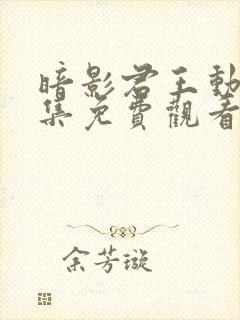 暗影君王動
集免費觀看
余芳璇